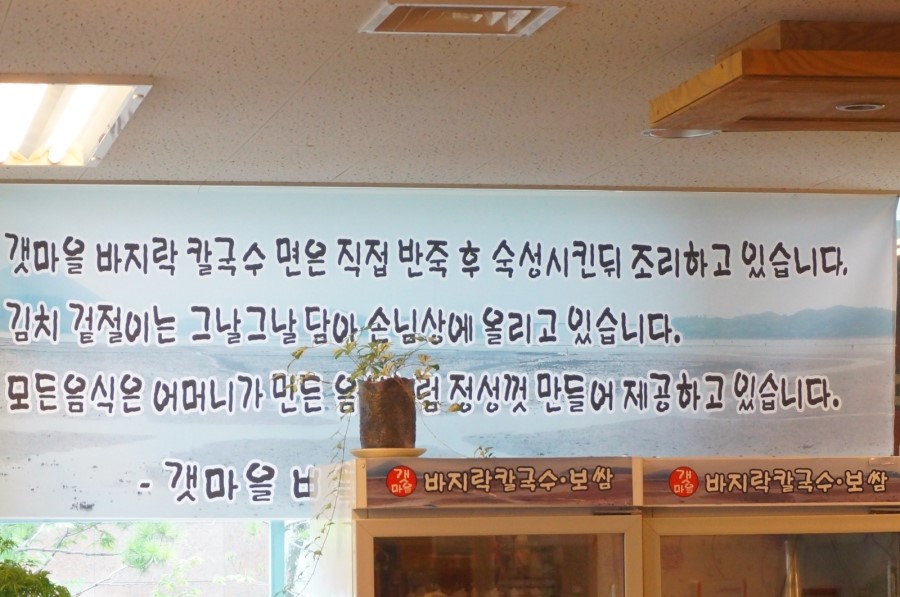 갯마을 바지락 칼국수 면은 직접 반죽 후 숙성시킨뒤 조리하고 있습니다.
김치 겉절이는 그날그날 담아 손님상에 올리고 있습니다.
모든음식은 어머니가 만든 정성껏 만들어 제공하고 있습니다.
- 갯마을
갯마을 바지락칼국수·보쌈
갯마을 바지락칼국수·보쌈